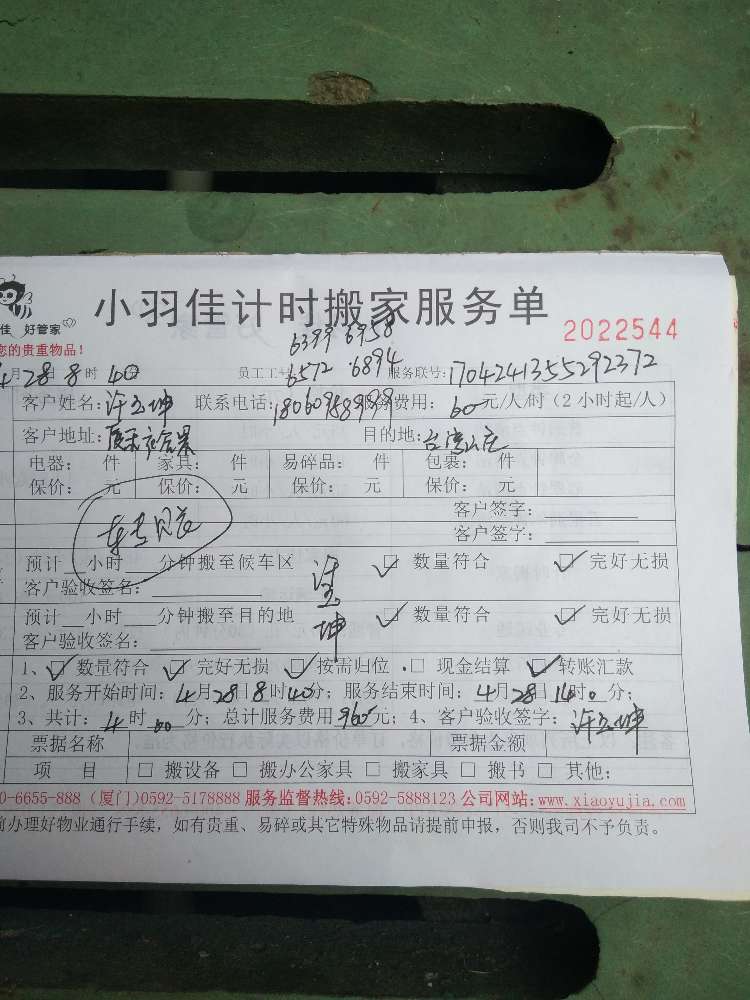 佳 好管家
小羽佳计时搬家服务单
2022544
您的贵重物品!
6399 6958
4月28 8时40分 员工工号: 6572 6894 服务联号: 1704241355292372
客户姓名: 许玉坤 联系电话: 18060958998 服务费用: 60 元/人/时(2小时起/人)
客户地址: 目的地: 台湾山庄
电器: 件 家具: 件 易碎品: 件 包裹: 件
保价: 元 保价: 元 保价: 元 保价: 元
客户签字:
客户签字:
预计 小时 分钟搬至候车区 ☑ 数量符合 ☑ 完好无损
客户验收签名: 许玉坤
预计 小时 分钟搬至目的地 ☑ 数量符合 ☑ 完好无损
客户验收签名:
1、☑ 数量符合 ☑ 完好无损 ☑ 按需归位 □ 现金结算 ☑ 转账汇款
2、服务开始时间: 4月28日8时40分; 服务结束时间: 4月28日14时0分;
3、共计: 4时00分; 总计服务费用960元; 4、客户验收签字: 许玉坤
票据名称 票据金额
项 目 □ 搬设备 □ 搬办公家具 □ 搬家具 □ 搬书 □ 其他:
0-6655-888 (厦门)0592-5178888 服务监督热线:0592-5888123 公司网站:www.xiaoyujia.com
前办理好物业通行手续,如有贵重、易碎或其它特殊物品请提前申报,否则我司不予负责。